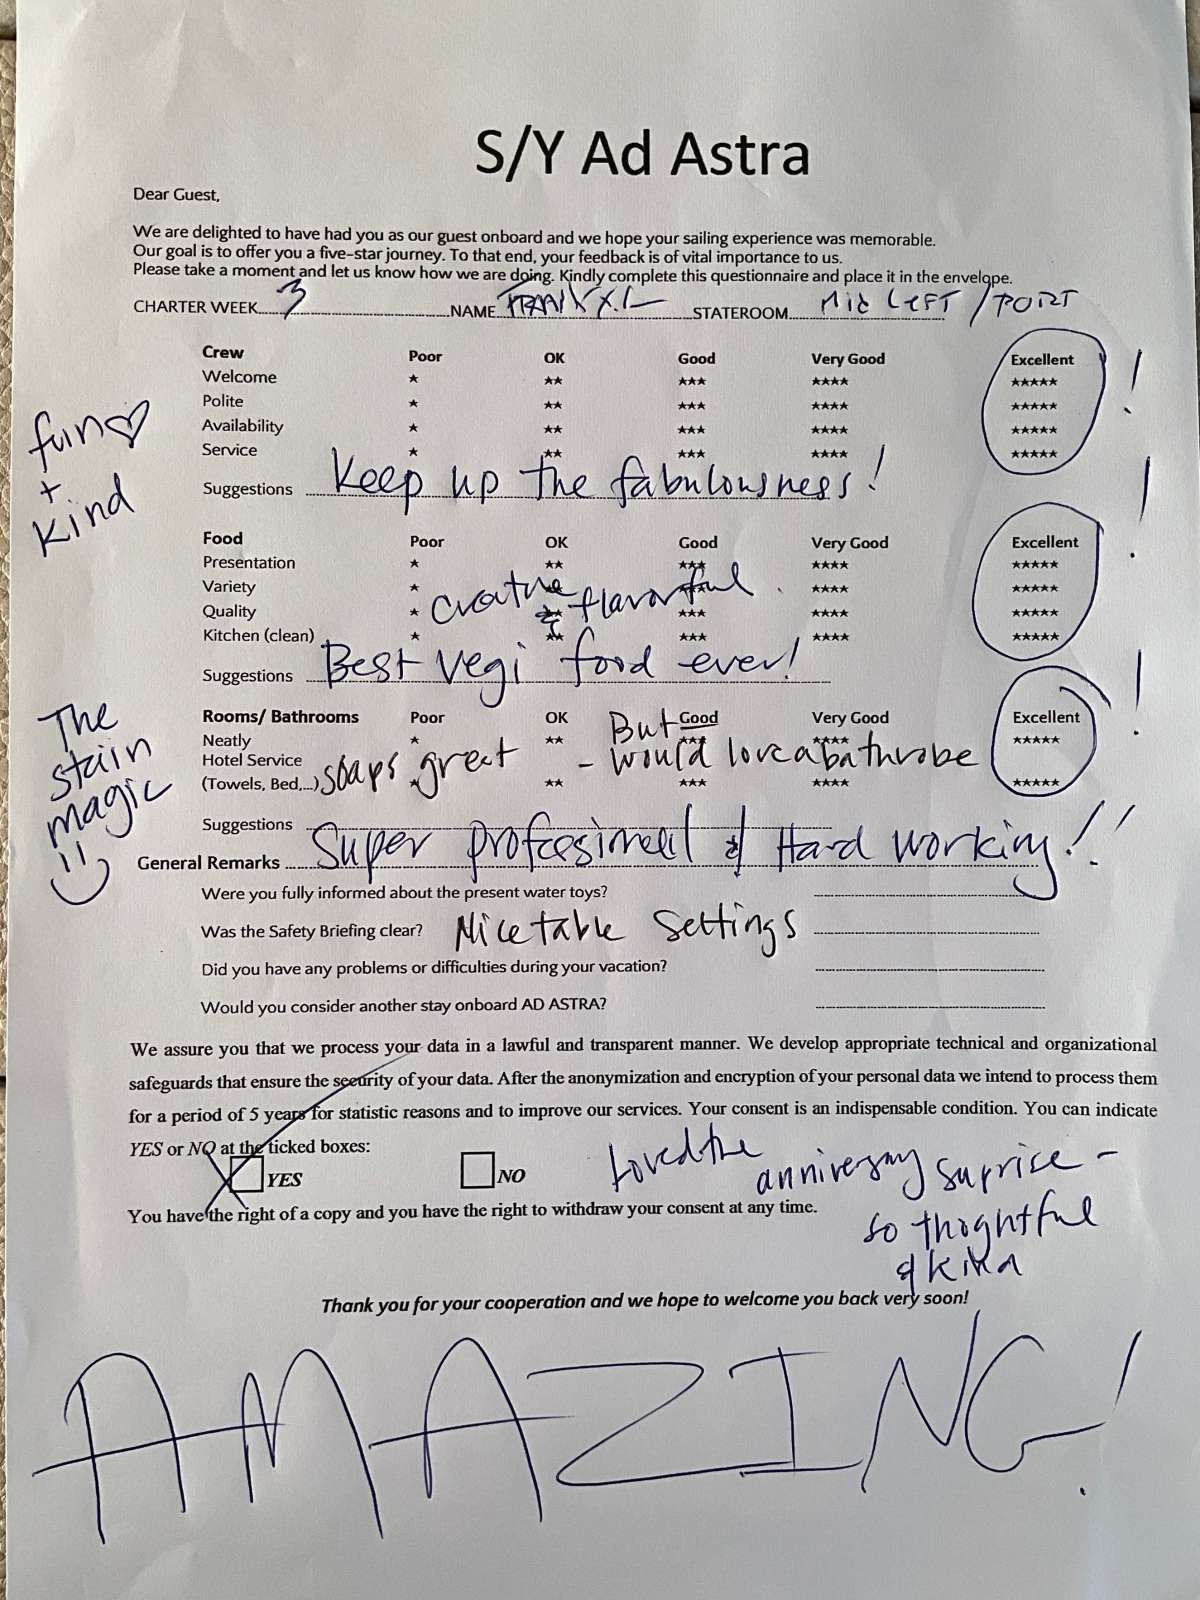 S/Y Ad Astra
Dear Guest,
We are delighted to have had you as our guest onboard and we hope your sailing experience was memorable.
Our goal is to offer you a five-star journey. To that end, your feedback is of vital importance to us.
Please take a moment and let us know how we are doing. Kindly complete this questionnaire and place it in the envelope.
CHARTER WEEK 3 NAME STATEROOM Mid Left / PORT
Crew Poor OK Good Very Good Excellent !
Welcome ★ ★★ ★★★ ★★★★ ★★★★★
Polite ★ ★★ ★★★ ★★★★ ★★★★★
Availability ★ ★★ ★★★ ★★★★ ★★★★★
Service ★ ★★ ★★★ ★★★★ ★★★★★
fun ♡
+
Kind
Suggestions Keep up the fabulousness!
Food Poor OK Good Very Good Excellent !
Presentation ★ ★★ ★★★ ★★★★ ★★★★★
Variety ★ ★★ ★★★ ★★★★ ★★★★★
creative & flavorful
Quality ★ ★★ ★★★ ★★★★ ★★★★★
Kitchen (clean) ★ ★★ ★★★ ★★★★ ★★★★★
Suggestions Best Vegi food ever!
Rooms/ Bathrooms Poor OK Good Very Good Excellent !
Neatly ★ ★★ ★★★ ★★★★ ★★★★★
Hotel Service
(Towels, Bed,...) ★ ★★ ★★★ ★★★★ ★★★★★
soaps great - But would love a bathrobe
The
stain
magic
Suggestions
General Remarks Super professional & Hard working!!
Were you fully informed about the present water toys?
Was the Safety Briefing clear? Nice table settings
Did you have any problems or difficulties during your vacation?
Would you consider another stay onboard AD ASTRA?
We assure you that we process your data in a lawful and transparent manner. We develop appropriate technical and organizational
safeguards that ensure the security of your data. After the anonymization and encryption of your personal data we intend to process them
for a period of 5 years for statistic reasons and to improve our services. Your consent is an indispensable condition. You can indicate
YES or NO at the ticked boxes:
YES NO
Loved the anniversay suprice -
so thoghtful
& kind
You have the right of a copy and you have the right to withdraw your consent at any time.
Thank you for your cooperation and we hope to welcome you back very soon!
AMAZING!